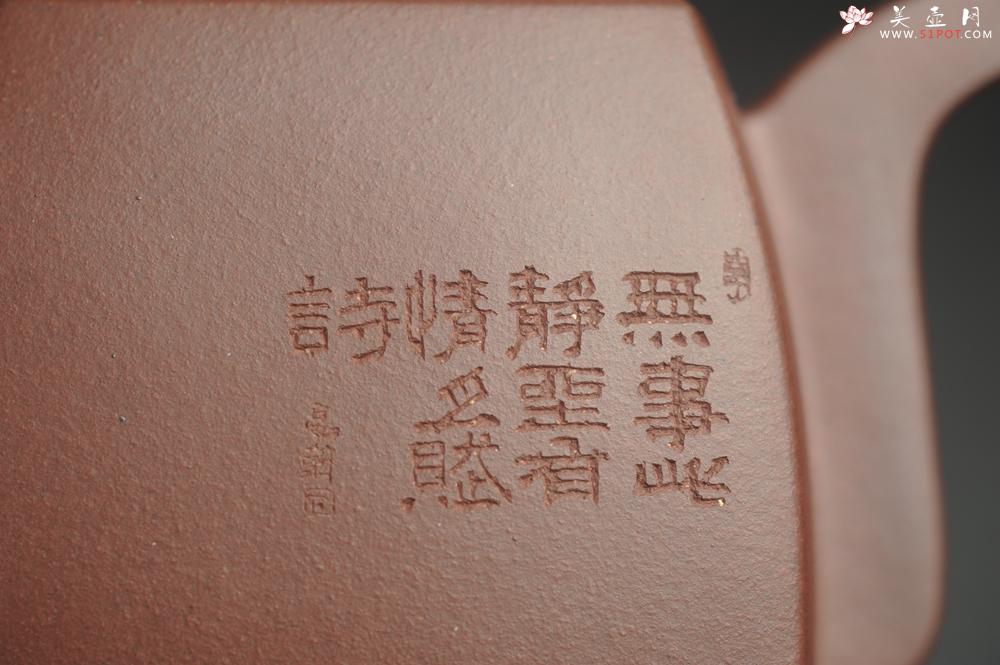 無事此
靜坐有
情且賦
詩
美壶网
WWW.51POT.COM